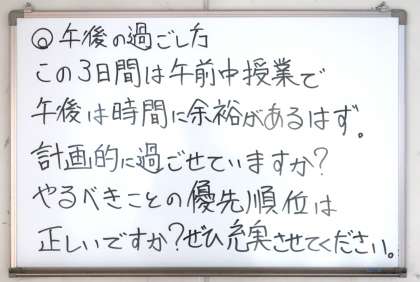 ◎午後の過ごし方
この3日間は午前中授業で
午後は時間に余裕があるはず。
計画的に過ごせていますか?
やるべきことの優先順位は
正しいですか?ぜひ充実させてください。